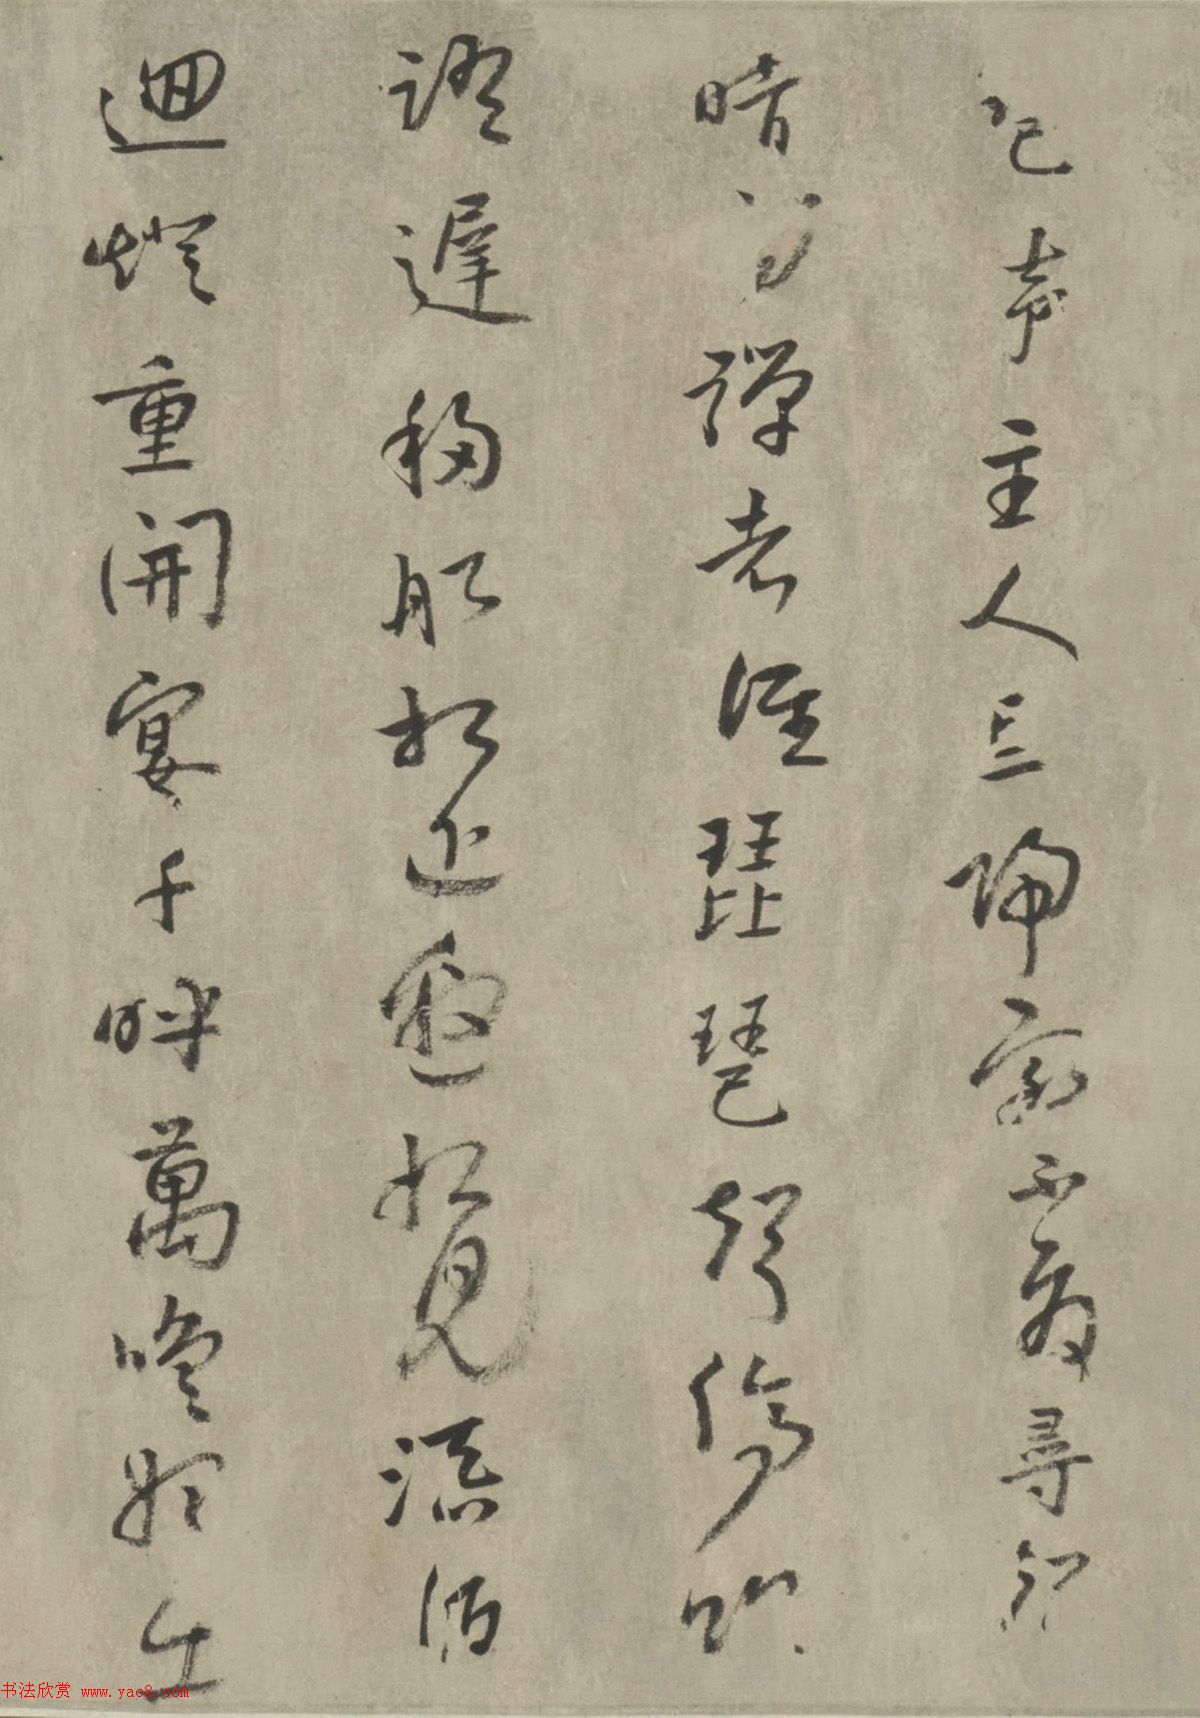 琶声主人忘歸客不發尋聲
暗問彈者誰琵琶聲停欲
語遲移船相近邀相見添酒
迴燈重開宴千呼萬喚始出
书法欣赏 www.yac8.com